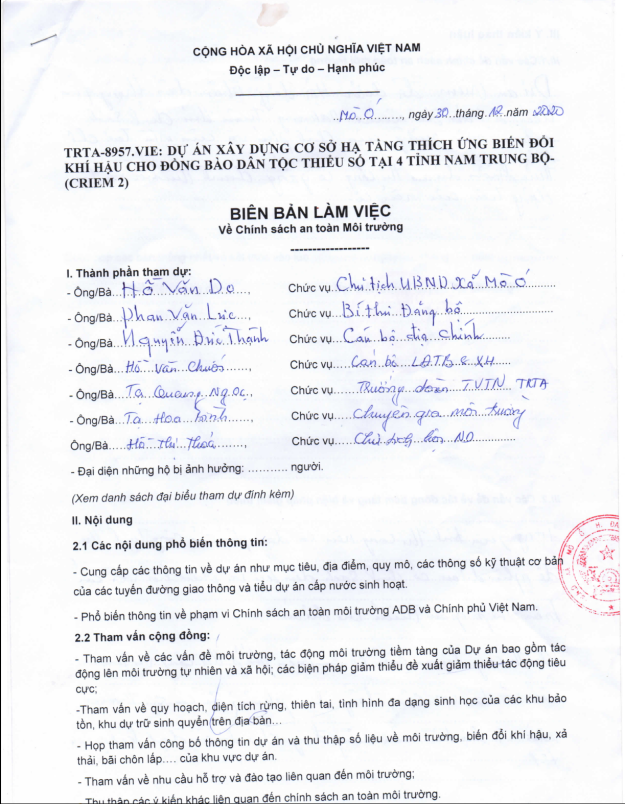 CỘNG HÒA XÃ HỘI CHỦ NGHĨA VIỆT NAM
Độc lập – Tự do – Hạnh phúc
..Mò Ó........, ngày 30..tháng.12.năm 2020
TRTA-8957.VIE: DỰ ÁN XÂY DỰNG CƠ SỞ HẠ TẦNG THÍCH ỨNG BIẾN ĐỔI
KHÍ HẬU CHO ĐỒNG BÀO DÂN TỘC THIỂU SỐ TẠI 4 TỈNH NAM TRUNG BỘ-
(CRIEM 2)
BIÊN BẢN LÀM VIỆC
Về Chính sách an toàn Môi trường
------------------
I. Thành phần tham dự:
- Ông/Bà...Hồ Văn Do...., Chức vụ..Chủ tịch UBND xã Mò Ó..........
- Ông/Bà..Phan Văn Lực....., Chức vụ...Bí thư Đảng bộ..........
- Ông/Bà...Nguyễn Đức Thành Chức vụ...Cán bộ địa chính..........
- Ông/Bà....Hồ Văn Chước...., Chức vụ.....Cán bộ LĐTB & XH..........
- Ông/Bà....Tạ Quang Ngọc., Chức vụ......Trưởng đoàn TVTN TRTA
- Ông/Bà....Tạ Hoà Bình....., Chức vụ.....Chuyên gia môi trường
Ông/Bà.....Hồ Thị Thoả......., Chức vụ.....Chủ tịch hội N.D..........
- Đại diện những hộ bị ảnh hưởng: ........... người.
(Xem danh sách đại biểu tham dự đính kèm)
II. Nội dung
2.1 Các nội dung phổ biến thông tin:
- Cung cấp các thông tin về dự án như mục tiêu, địa điểm, quy mô, các thông số kỹ thuật cơ bản
của các tuyến đường giao thông và tiểu dự án cấp nước sinh hoạt.
- Phổ biến thông tin về phạm vi Chính sách an toàn môi trường ADB và Chính phủ Việt Nam.
2.2 Tham vấn cộng đồng:
- Tham vấn về các vấn đề môi trường, tác động môi trường tiềm tàng của Dự án bao gồm tác
động lên môi trường tự nhiên và xã hội; các biện pháp giảm thiểu đề xuất giảm thiểu tác động tiêu
cực;
-Tham vấn về quy hoạch, diện tích rừng, thiên tai, tình hình đa dạng sinh học của các khu bảo
tồn, khu dự trữ sinh quyển trên địa bàn…
- Họp tham vấn công bố thông tin dự án và thu thập số liệu về môi trường, biến đổi khí hậu, xả
thải, bãi chôn lấp…. của khu vực dự án.
- Tham vấn về nhu cầu hỗ trợ và đào tạo liên quan đến môi trường;
- Thu thập các ý kiến khác liên quan đến chính sách an toàn môi trường.